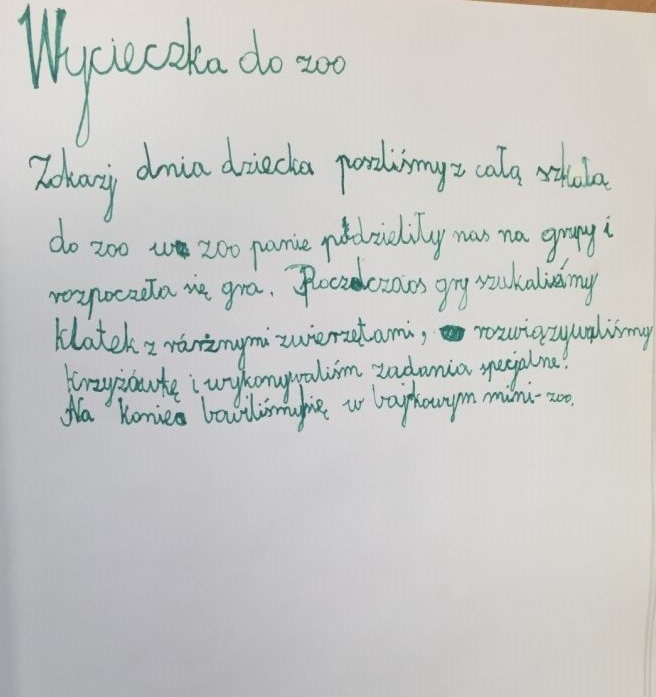 Wycieczka do zoo
Zokazij dnia dziecka poszliśmy z całą szkołą
do zoo w zoo panie podzieliły nas na grupy i
rozpoczeła się gra. Poczdczaos gry szukaliśmy
klatek z różnymi zwierzętami, rozwiązywaliśmy
krzyżówkę i wykonywaliśm zadania specjalne.
Na koniec bawiliśmysię w bajkowym mini-zoo.